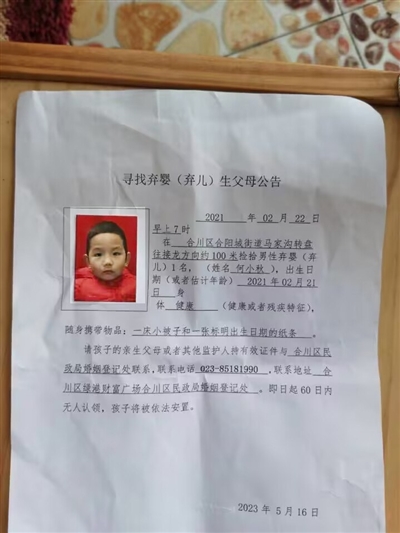 寻找弃婴（弃儿）生父母公告
2021 年 02 月 22 日
早上 7 时
在 合川区合阳城街道马家沟转盘
往接龙方向约 100 米捡拾男性弃婴（弃
儿）1 名，（姓名 何小秋 ），出生日
期（或者估计年龄） 2021 年 02 月 21
日 身
体 健康 （健康或者残疾特征），
随身携带物品：一床小被子和一张标明出生日期的纸条 。
请孩子的亲生父母或者其他监护人持有效证件与 合川区民
政局婚姻登记处联系，联系电话 023-85181990 ，联系地址 合
川区绿港财富广场合川区民政局婚姻登记处 。即日起 60 日内
无人认领，孩子将被依法安置。
2023 年 5 月 16 日